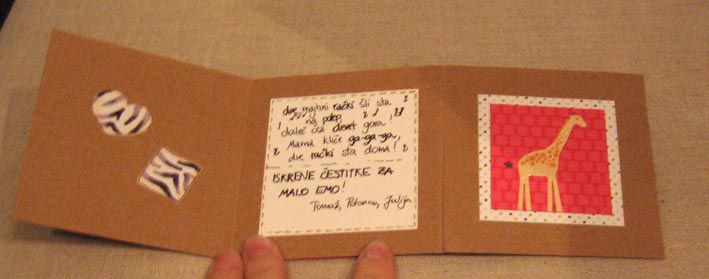 dve majhni rački šli sta
na potep,
daleč čez devet gora,
Mama kliče ga-ga-ga,
dve rački sta doma!
ISKRENE ČESTITKE ZA
MALO EMO!
Tomaž, Polonca, Julija